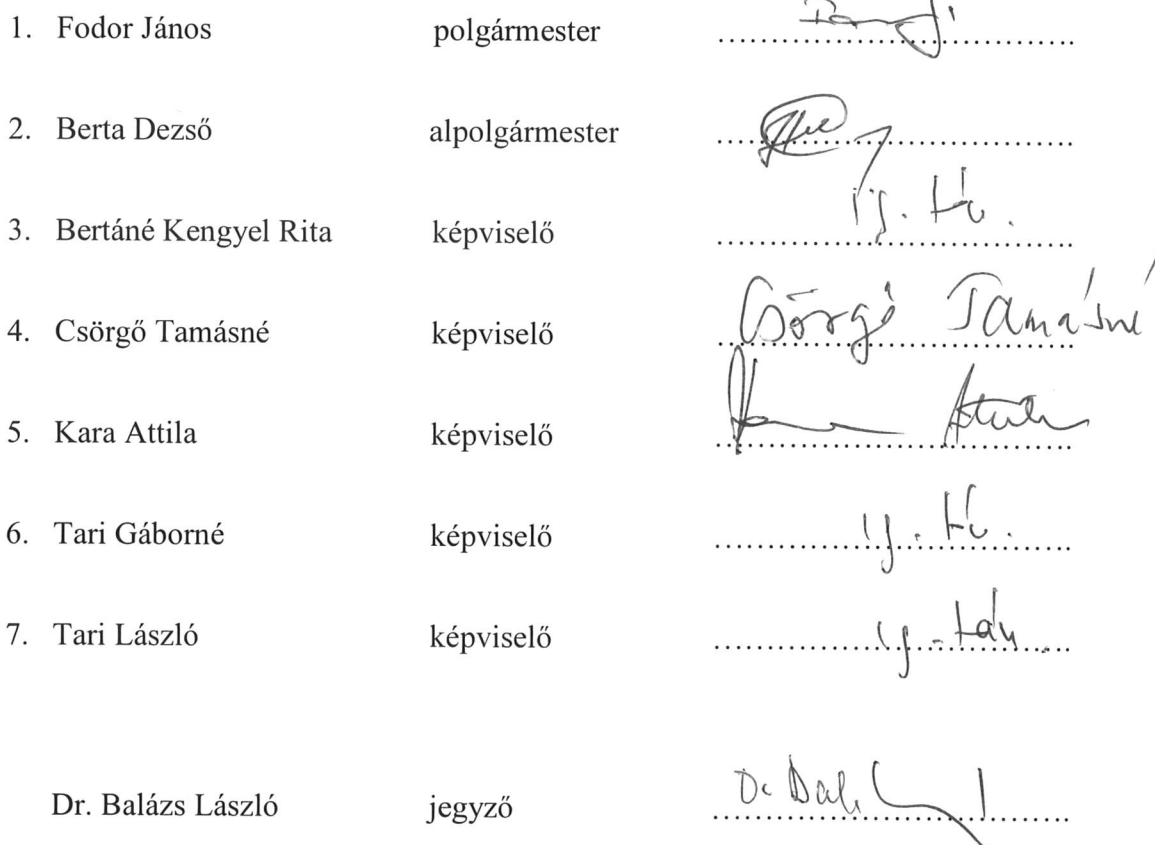 1. Fodor János polgármester
2. Berta Dezső alpolgármester
3. Bertáné Kengyel Rita képviselő ig. tv.
4. Csörgő Tamásné képviselő Csörgő Tamásné
5. Kara Attila képviselő Attila
6. Tari Gáborné képviselő ig. tv.
7. Tari László képviselő ig. táv.
Dr. Balázs László jegyző Dr Bal